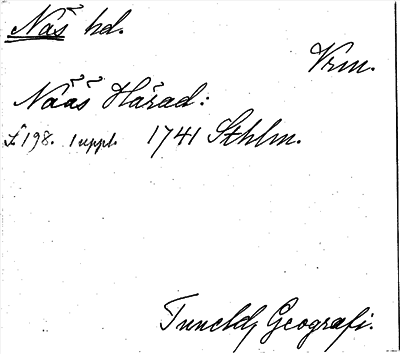 Näs hd.
Vrm.
Nääs Härad:
s. 198. 1 uppl. 1741 Sthlm.
Tuneld, Geografi.